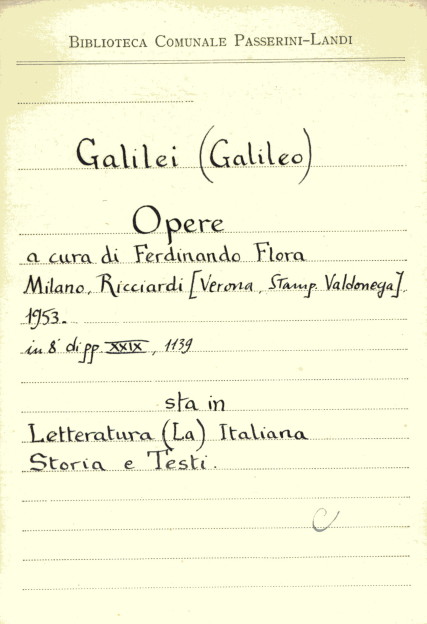 BIBLIOTECA COMUNALE PASSERINI-LANDI
Galilei (Galileo)
Opere
a cura di Ferdinando Flora
Milano, Ricciardi [Verona, Stamp. Valdonega].
1953.
in 8° di pp. XXIX, 1139
sta in
Letteratura (La) Italiana
Storia e Testi.
C